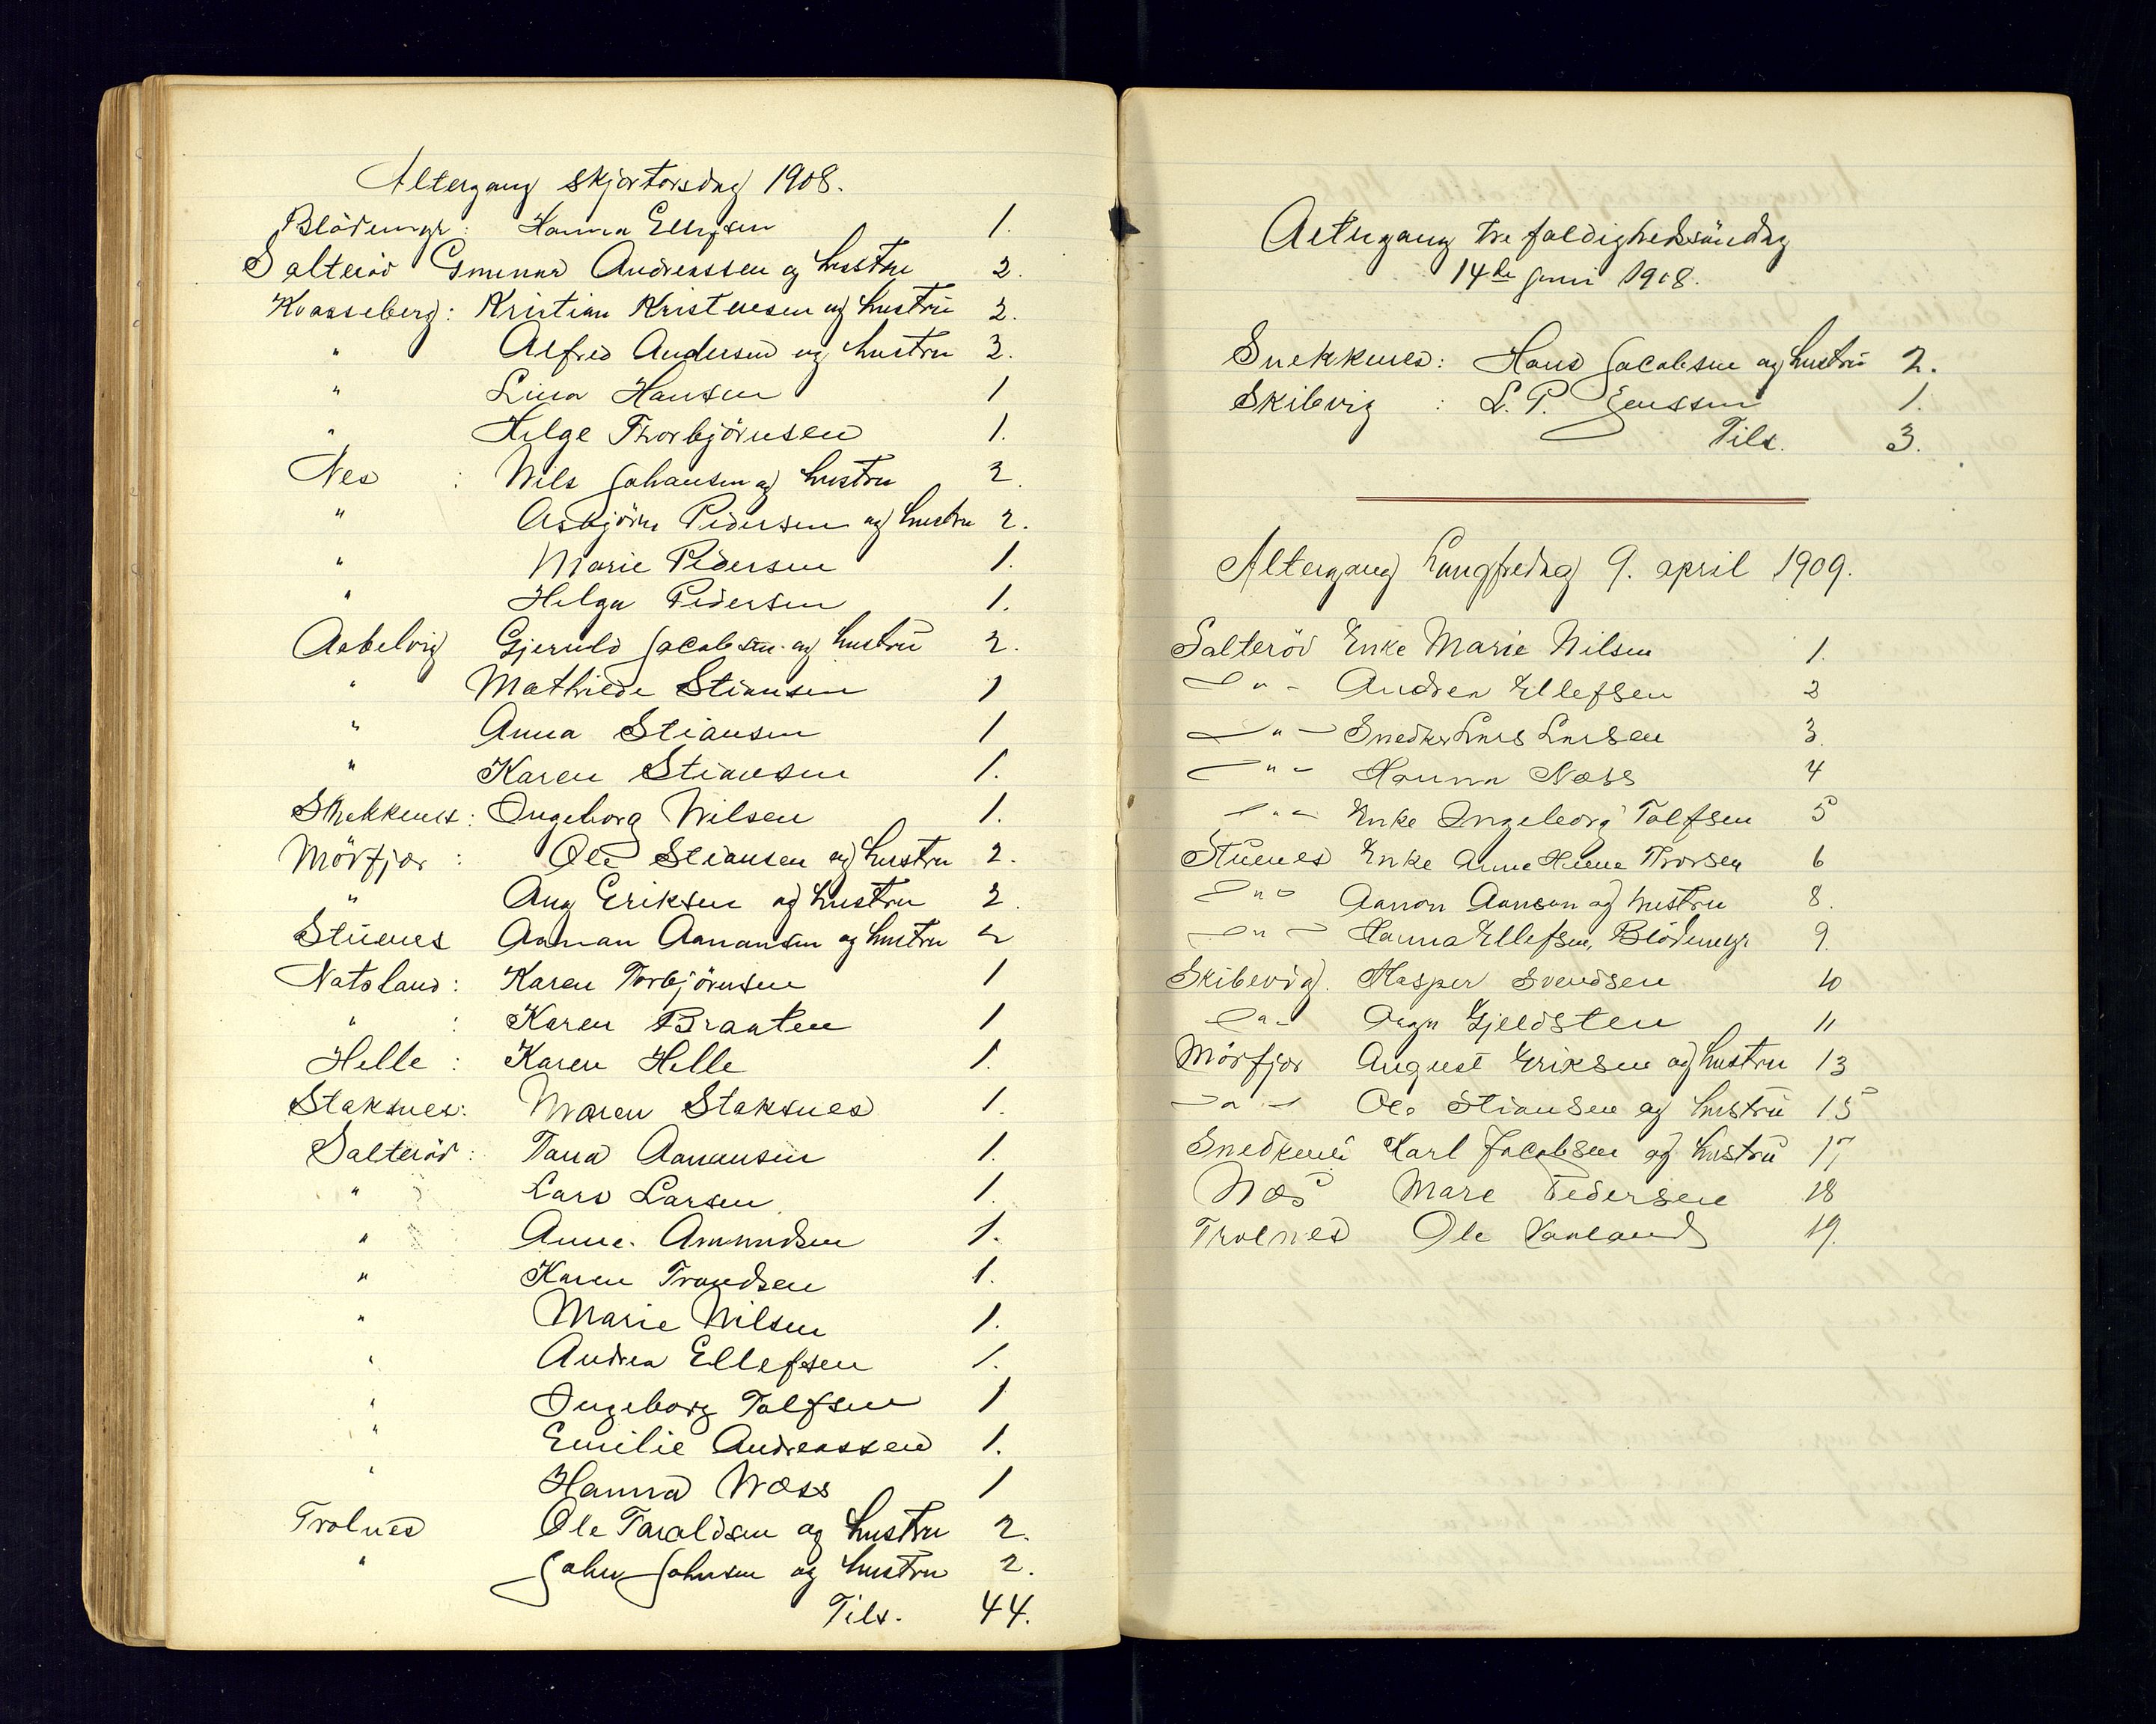 Altergang skjærtorsdag 1908.
Blödemyr: Hanna Ellefsen 1.
Salteröd Gunnar Andreassen og hustru 2.
Kvasseberg: Kristian Kristensen og hustru 2.
" Alfred Andersen og hustru 2.
" Lina Hansen 1
" Helge Thorbjörnsen 1.
Nes : Nils Johansen og hustru 2.
" Asbjörn Pedersen og hustru 2.
" Marie Pedersen 1.
" Helga Pedersen 1.
Aabelvig Gjeruld Jacobsen og hustru 2.
" Mathilde Stiansen 1
" Anna Stiansen 1
" Karen Stiansen 1.
Snekkenes: Ingeborg Nilsen 1.
Mörfjær : Ole Stiansen og hustru 2.
" Aug Eriksen og hustru 2.
Stuenes Aanan Aanansen og hustru 2
Natsland: Karen Torbjörnsen 1
" : Karen Braaten 1
Helle : Karen Helle 1.
Staksnes: Maren Staksnes 1.
Salteröd: Tara Aanansen 1.
" Lars Larsen 1.
" Anne Amundsen 1.
" Karen Trondsen 1.
" Marie Nilsen 1.
" Andrea Ellefsen 1.
" Ingeborg Tolfsen 1
" Emilie Andreassen 1.
" Hanna Næss 1
Trolnes Ole Taraldsen og hustru 2.
" John Johnsen og hustru 2.
Tils. 44.
Altergang trefoldighedssöndag
14de juni 1908.
Snekkenes: Hans Jacobsen og hustru 2.
Skibvig : L. P. Jenssen 1.
Tils. 3.
Altergang Langfredag 9. april 1909.
Salteröd Enke Marie Nilsen 1.
— " — Andrea Ellefsen 2
— " — Snedker Lars Larsen 3.
— " — Hanna Næss 4
— " — Enke Ingeborg Tolfsen 5
Stuenes Enke Anne Thorsen 6
— " — Aanon Aansen og hustru 8.
— " — Hanna Ellefsen, Blödemyr 9.
Skibevig. Kasper Svendsen 10
— " — Gjeldsten 11
Mörfjær August Eriksen og hustru 13
— " — Ole Stiansen og hustru 15
Snedkenes Karl Jacobsen og hustru 17
Næs Mare Pedersen 18
Trolnes Ole Vauland 19.